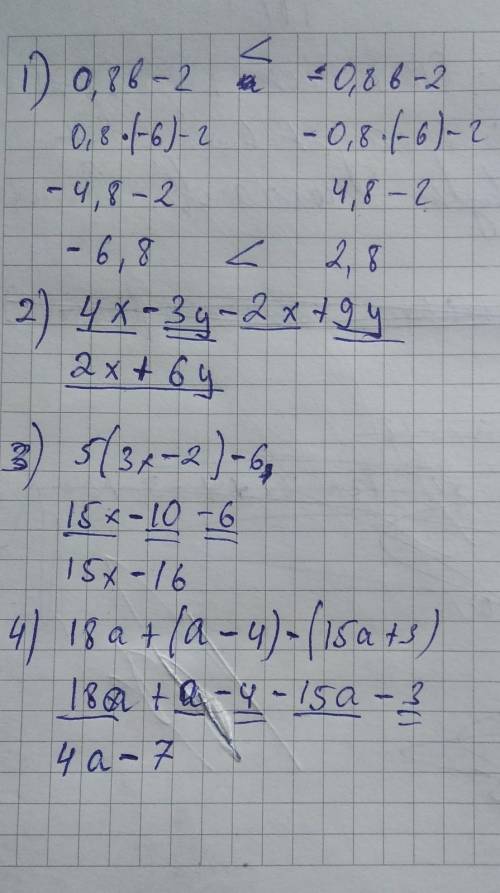 <
1) 0,8в-2 a -0,8в-2
0,8·(-6)-2 -0,8·(-6)-2
-4,8-2 4,8-2
-6,8 < 2,8
2) 4x-3y-2x+9y
2x+6y
3) 5(3x-2)-6
15x-10-6
15x-16
4) 18a+(a-4)-(15a+3)
18a+a-4-15a-3
4a-7